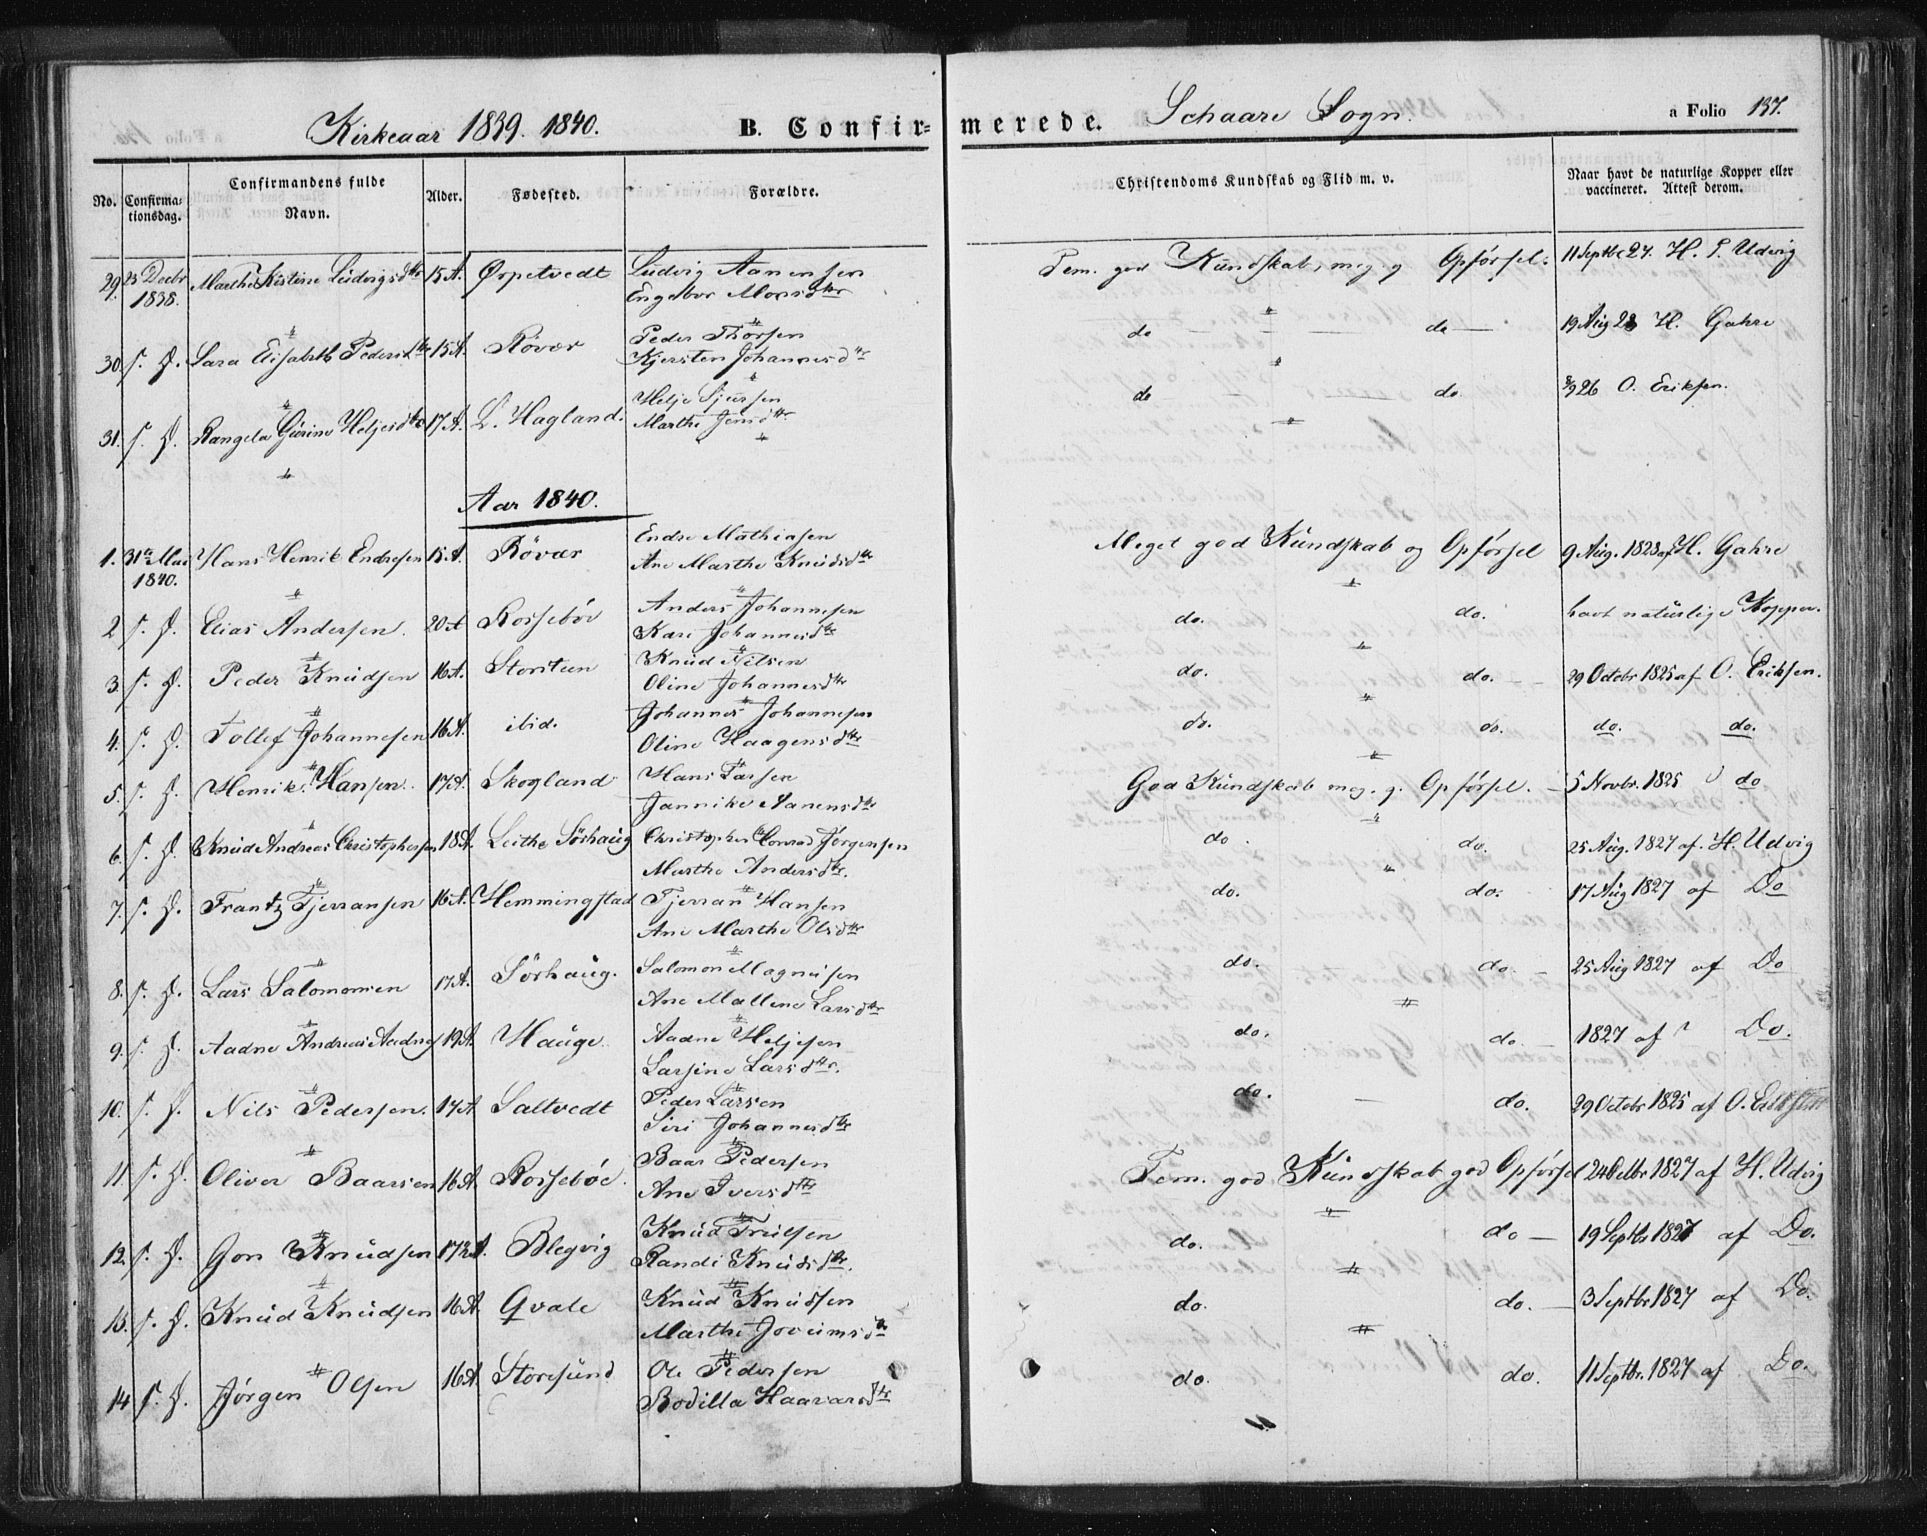 Kirkeaar 1839. 1840. B. Confirmerede. Schaare Sogn. a Folio 137.
No. Confirmationsdag. Confirmandens fulde Navn. Alder. Fødested. Forældre. Christendoms Kundskab og Flid m. v. Naar havt de naturlige Kopper eller vaccineret. Attest derom.
29. 23 Decbr 1838. Marthe Kistine Ludvigsdtr 15 A. Ørpetvedt Ludvig Aanensen Tem. god Kundskab, meg. g Opførsel. 11 Septbr 27. H. P. Udvig
Engebor Monsdtr
30. s. D. Lara Elisabeth Pedersdtr 15 A. Røvær Peder Thorsen do do 19 Aug 28 H. Gahre
Kjersten Johannesdtr
31. s. D. Rangela Gurine Heljesdtr 17 A. L. Hagland. Helje Sjursen do do 8/9 26 O. Eriksen.
Marthe Jensdtr
Aar 1840.
1. 31te Mai 1840. Hans Henrik Endresen 15 A. Røvær Endre Mathiasen Meget god Kundskab og Opførsel 9 Aug. 1828 af H. Gahre
Ane Marthe Knudsdtr
2 s. D. Elias Andersen. 20 A Rossebøe Anders Johannesen do. do. havt naturlige Kopper.
Kari Johannesdtr
3. s. D. Peder Knudsen 16 A. Storsteen Knud Nilsen do. do. 29 Octobr 1825 af O. Eriksen.
Oline Johannesdtr
4. s. D. Tollef Johannesen 16 A. ibid. Johannes Johannesen do. do. do. do.
Oline Haagensdtr
5. s. D. Henrik Hansen. 17 A. Skogland Hans Larsen God Kundskab meg. g. Opførsel. 5 Novbr. 1825 do
Jannike Aanensdtr
6. s. D. Knud Andreas Christophersen 18 A. Leithe Sørhaug Christopher Conrad Jørgensen do. do. 25 Aug. 1827 af. H. Udvig
Marthe Andersdtr.
7. s. D. Frantz Tjerransen 16 A. Hemmingstad Tjerran Hansen do. do. 17 Aug 1827 af Do
Ane Marthe Olsdtr
8. s. D. Lars Salomonsen 17 A. Sørhaug. Salomon Magnusen do. do. 25 Aug 1827 af Do
Ane Mallene Larsdtr
9. s. D. Aadne Andreas Aadnes 19 A. Hauge. Aadne Heljesen do. do. 1827 af Do.
Larsine Larsdtr.
10. s. D. Nils Pedersen. 17 A Saltvedt Peder Larsen do. do. 29 Octobr 1825 af O. Eriksen
Siri Johannesdtr
11. s. D. Oliver Baarsen 16 A. Rossebøe. Baar Pedersen Tem. god Kundskab god Opførsel 24 Octbr 1827 af H. Udvig
Ane Iversdtr
12. s. D. Gon Knudsen 17½ A. Blegvig Knud Truelsen do. do 19 Septbr 1827 af Do.
Randi Knudsdtr.
13. s. D. Knud Knudsen 16 A. Qvale Knud Knudsen do. do. 3 Septbr 1827 af Do.
Marthe Joveimsdtr
14 s. D. Jørgen Olsen 16 A Storesund Ole Pedersen do. do. 11 Septbr. 1827 af Do.
Bodilla Haavarsdtr